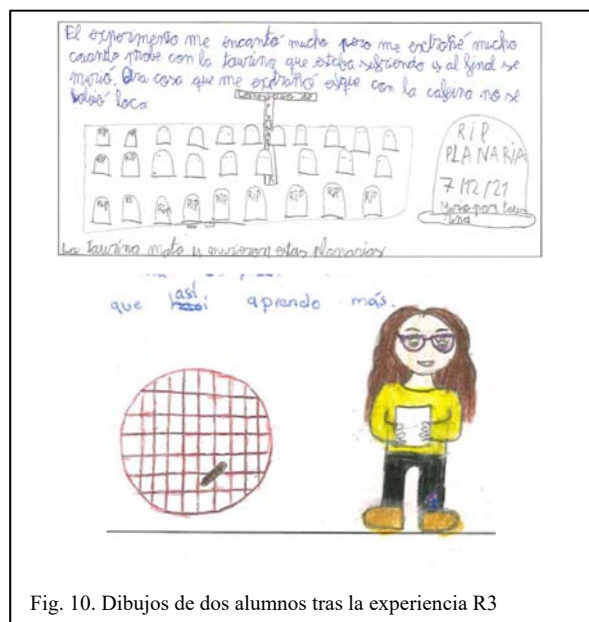 El experimento me encantó mucho pero me extrañé mucho
cuando probé con la taurina que estaba sufriendo y al final se
murió. Otra cosa que me extrañó es que con la cafeina no se
volvió loca
RIP RIP
RIP RIP
RIP RIP RIP RIP RIP RIP RIP RIP RIP
RIP
PLANARIA
7/12/21
Murio por tau
rina
La taurina mato y murieron estas planarias
que así aprendo más.
Fig. 10. Dibujos de dos alumnos tras la experiencia R3